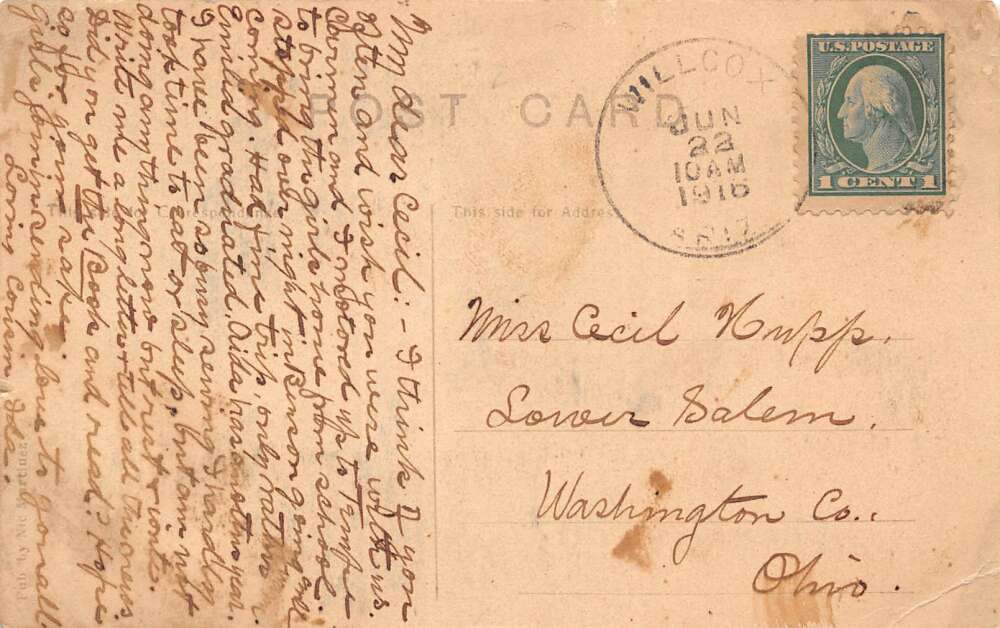 POST CARD
This side for Correspondence
This side for Address
WILLCOX
JUN
22
10 AM
1916
ARIZ.
U.S. POSTAGE
1 CENT 1
Miss Cecil Hupp.
Lower Salem.
Washington Co.,
Ohio.
My dear Cecil: - I think of you
often and wish you were with us.
and I motored up to Tempe
to bring the girls home from school.
Stopped over night in Benson going and
coming. Had fine trip, only rather
Emilie graduated, has another year.
I have been so busy sewing I hardly
took time to eat or sleep, but am not
doing anything now but rest & write.
Write me a long letter & tell all the news.
Did you get the Book and read? Hope
so for your sake.
Girls join in sending love to you all.
Loving Cousin Ida.
Pub by Nic Martinez